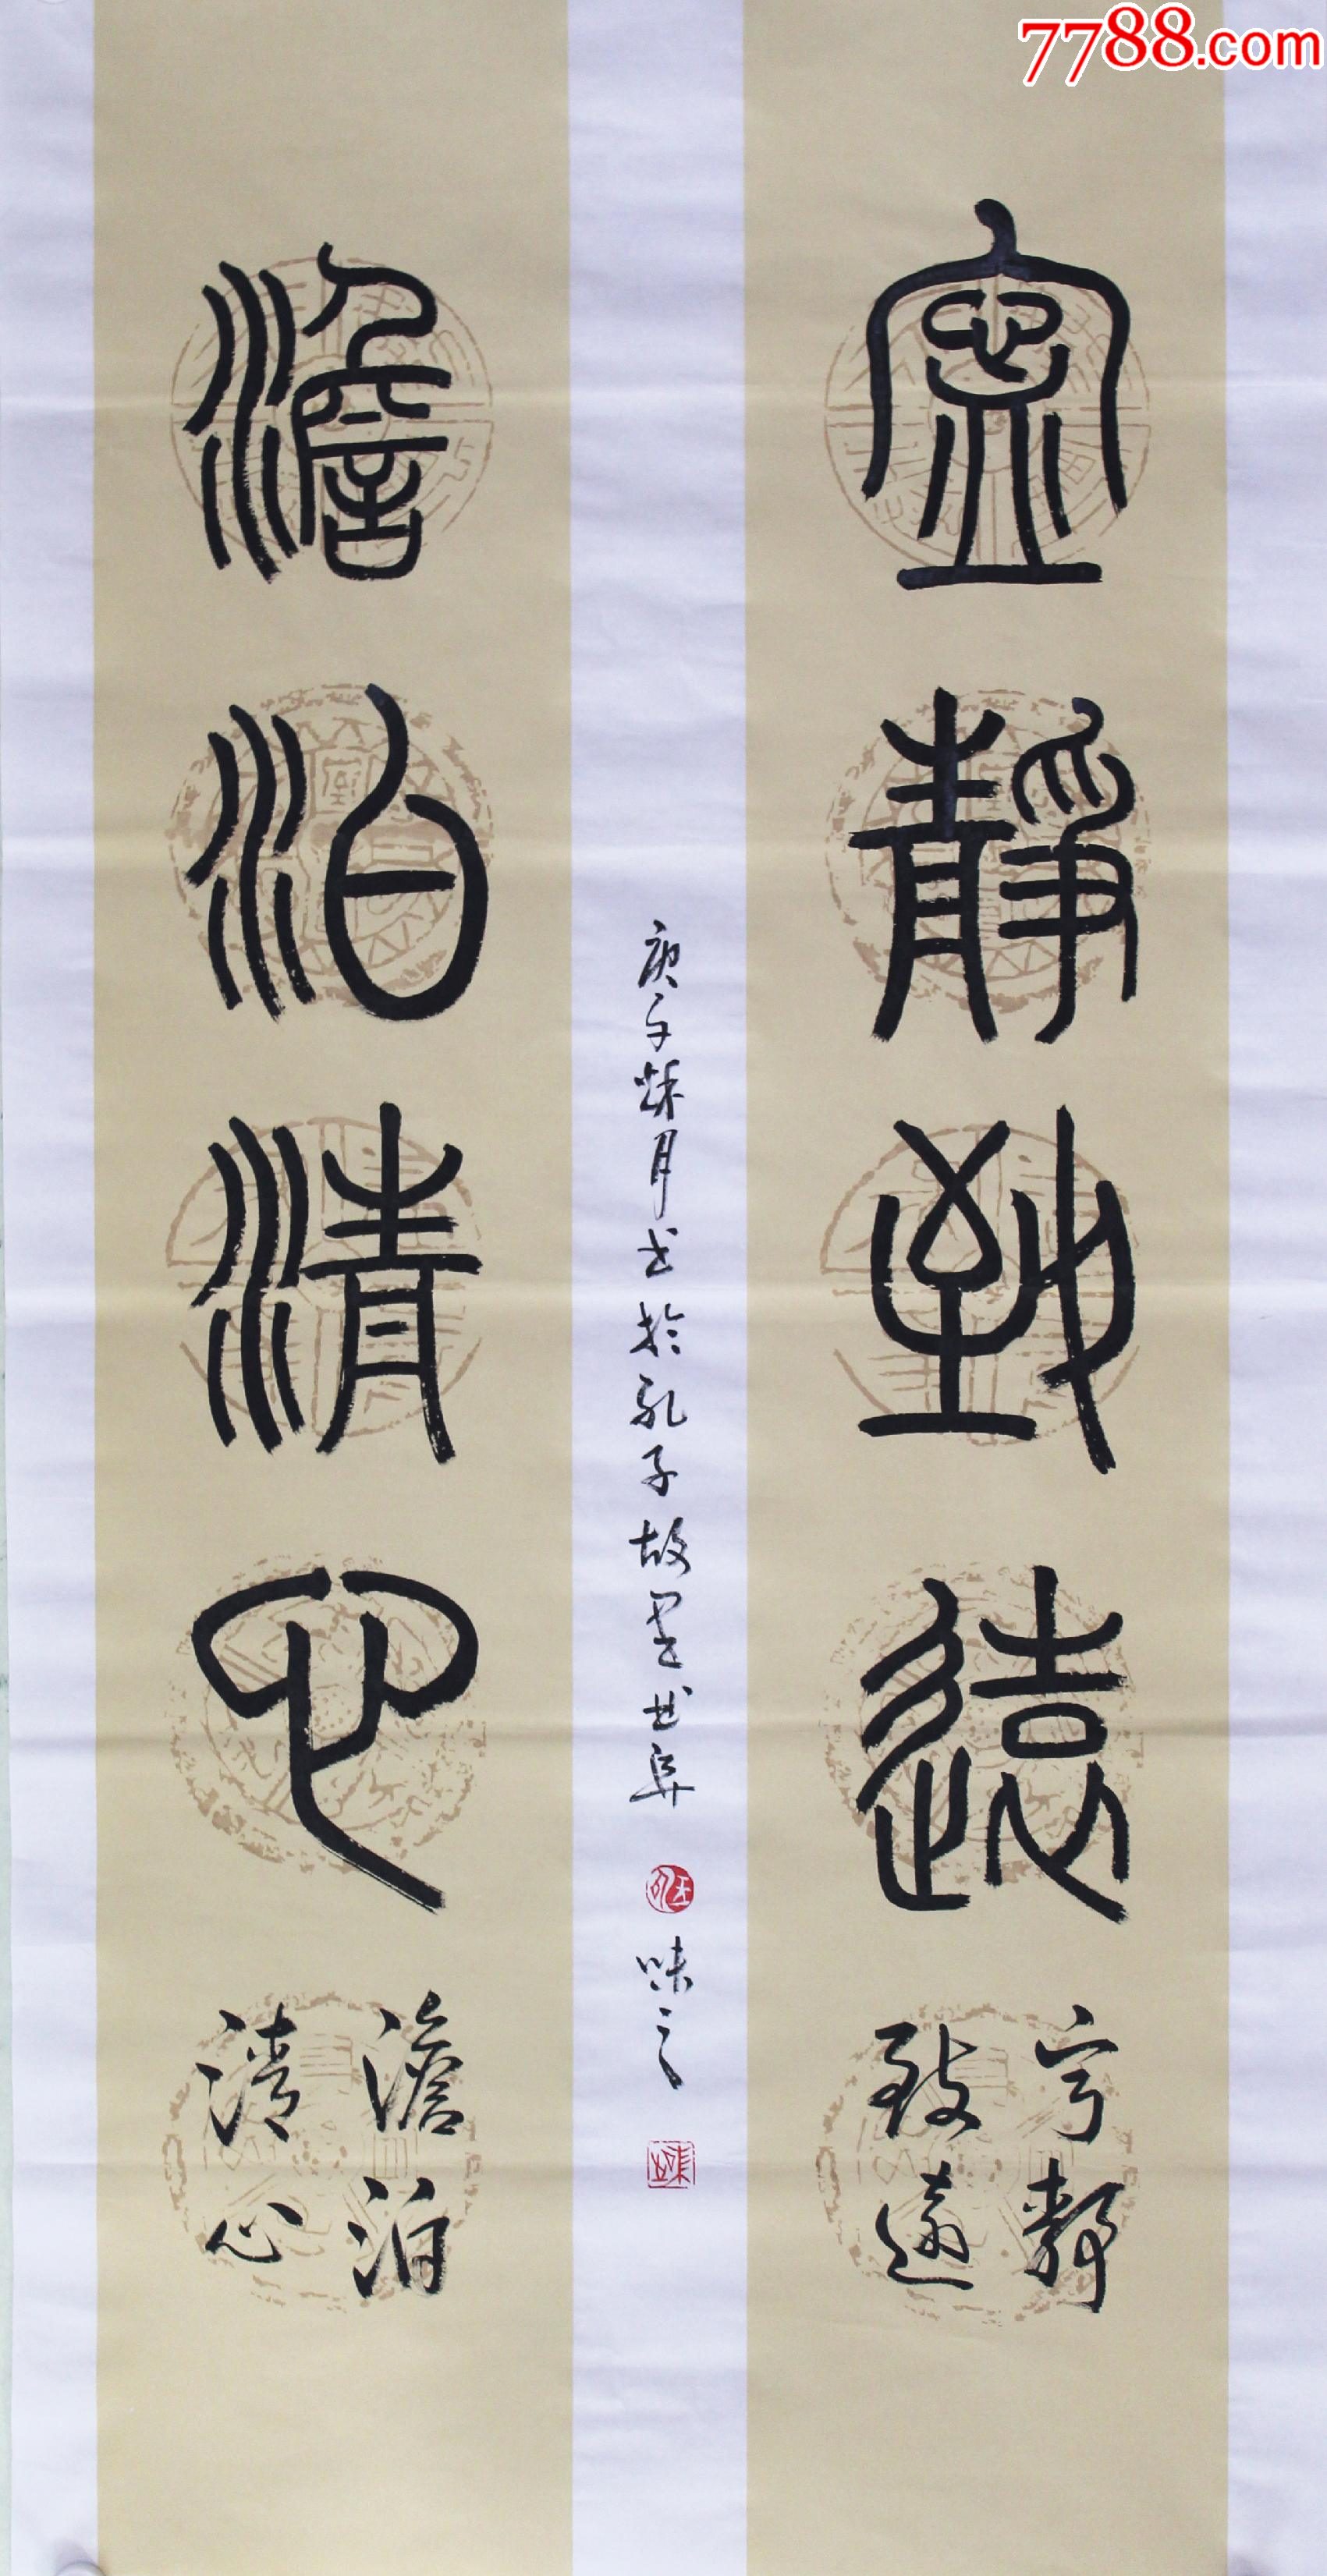 7788.com
寍靜致遠
宁靜
致遠
庚子秌月书於孔子故里曲阜
味之
澹泊清心
澹泊
清心